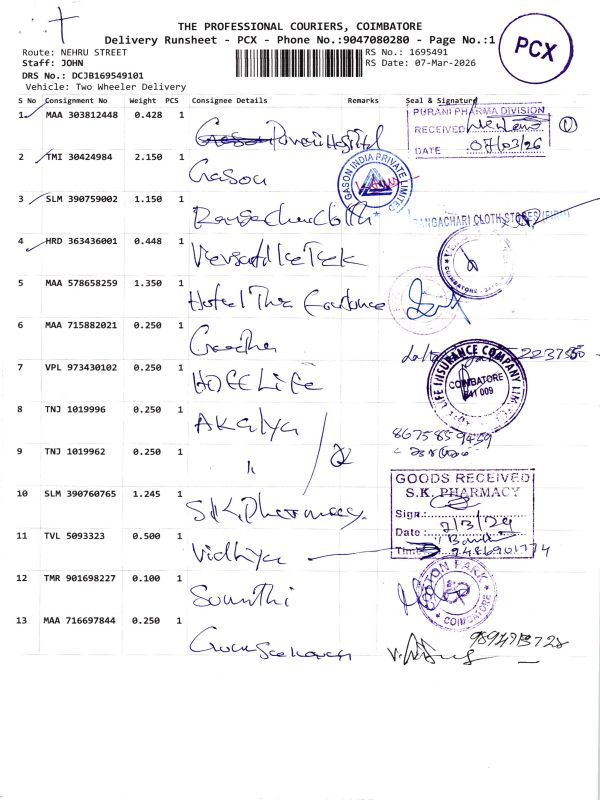 THE PROFESSIONAL COURIERS, COIMBATORE
Delivery Runsheet - PCX - Phone No.:9047080280 - Page No.:1
PCX
Route: NEHRU STREET
RS No.: 1695491
Staff: JOHN
RS Date: 07-Mar-2026
DRS No.: DCJB169549101
Vehicle: Two Wheeler Delivery
S No Consignment No Weight PCS Consignee Details Remarks Seal & Signature
1 MAA 303812448 0.428 1 Hospital
PURANI PHARMA DIVISION
RECEIVED
DATE 07/03/26
2 TMI 30424984 2.150 1 Gason
GASON INDIA PRIVATE LIMITED
3 SLM 390759002 1.150 1 Rangachari Cloth
RANGACHARI CLOTH STORES
4 HRD 363436001 0.448 1
COIMBATORE
5 MAA 578658259 1.350 1 Hotel The
6 MAA 715882021 0.250 1 Geedha
7 VPL 973430102 0.250 1 HDFC Life
LIFE INSURANCE COMPANY LIMITED
COIMBATORE
641 009
8 TNJ 1019996 0.250 1 Akalya
8675859459
9 TNJ 1019962 0.250 1 "
10 SLM 390760765 1.245 1 S.K. Pharmacy.
GOODS RECEIVED
S.K. PHARMACY
Sign.:
Date :
Time:
11 TVL 5093323 0.500 1 Vidhya
12 TMR 901698227 0.100 1 Sumthi
PARK
COIMBATORE
13 MAA 716697844 0.250 1 Gunasekaran